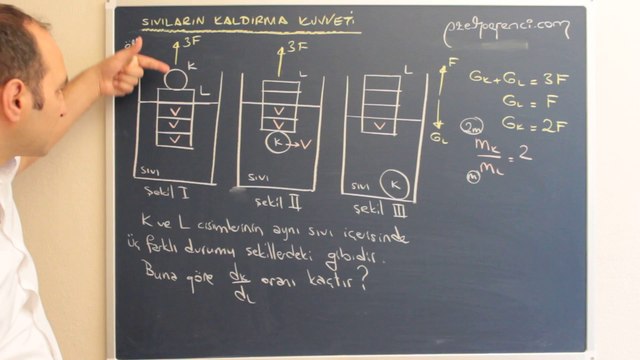 SIVILARIN KALDIRMA KUVVETİ
pratikogrenci.com
3F
K
L
V
V
V
SIVI
Şekil I
3F
L
V
K → V
SIVI
Şekil II
L
V
SIVI
K
Şekil III
F
G_L
G_K + G_L = 3F
G_L = F
G_K = 2F
2m
m_K / m_L = 2
m
K ve L cisimlerinin aynı sıvı içerisinde
üç farklı durumu şekillerdeki gibidir.
Buna göre d_K / d_L oranı kaçtır?